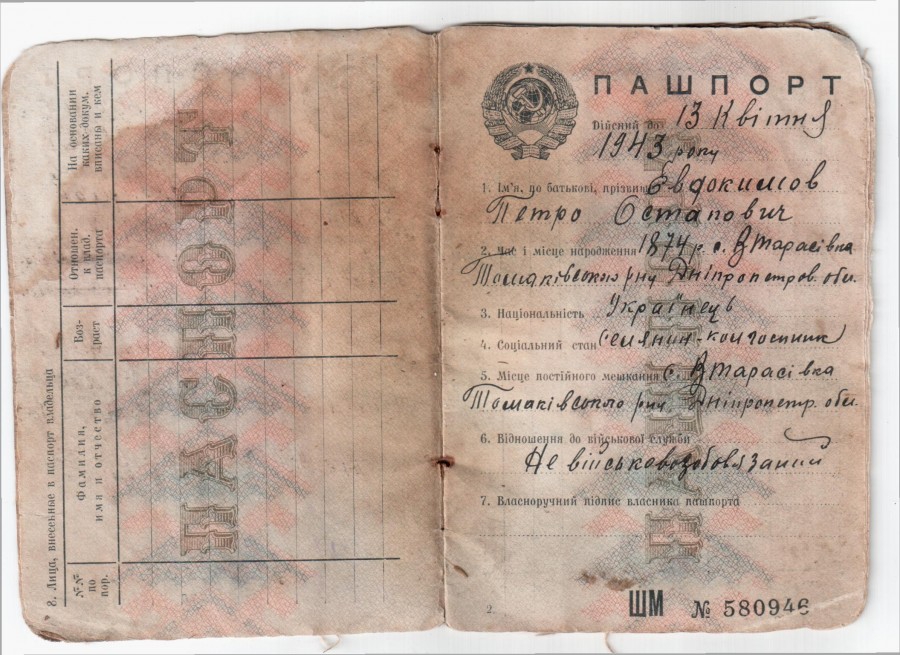 8. Лица, внесенные в паспорт владельца
№№
по
пор.
Фамилия,
имя и отчество
Воз-
раст
Отношен.
к влад.
паспорта
На основании
каких докум.
вписаны и кем
ПАСПОРТ
ПАШПОРТ
Дійсний до 13 Квітня
1943 року
1. Ім'я, по батькові, прізвище Евдокимов
Петро Остапович
2. Час і місце народження 1874 р. с. Втарасівка
Томаківського р-ну Дніпропетров. обл.
3. Національність Українець
4. Соціальний стан Селянин-колгоспник
5. Місце постійного мешкання с. Втарасівка
Томаківського р-ну Дніпропетр. обл.
6. Відношення до військової служби
Не військовозобовязаний
7. Власноручний підпис власника пашпорта
2
ШМ № 580946